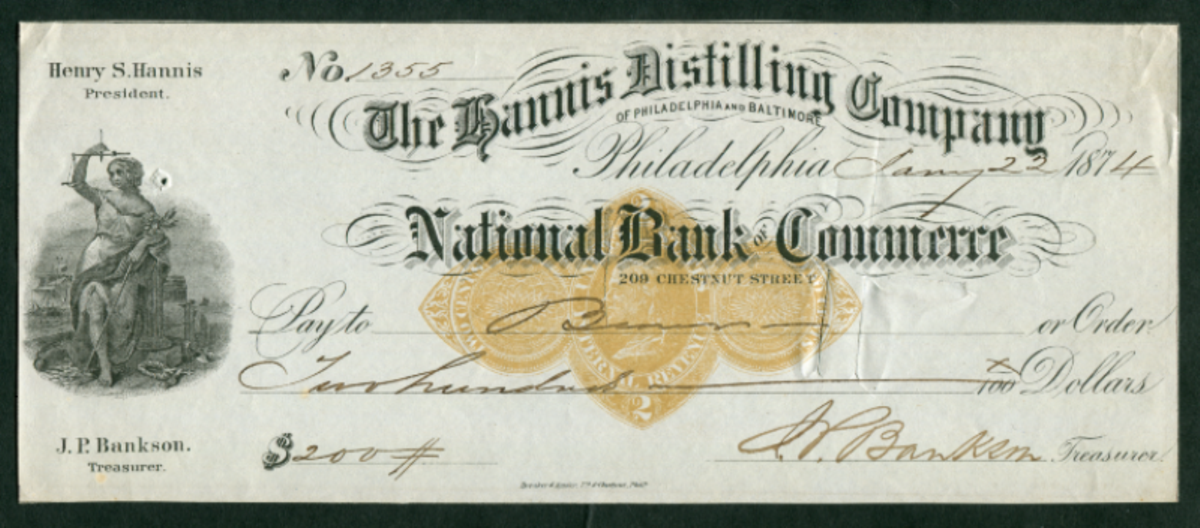 Henry S. Hannis
President.
No. 1355
The Hannis Distilling Company
OF PHILADELPHIA AND BALTIMORE
Philadelphia Jany 23 1874
National Bank of Commerce
209 CHESTNUT STREET
Pay to or Order
Two hundred x/100 Dollars
2
J. P. Bankson.
Treasurer.
$200 #
J. P. Bankson Treasurer.